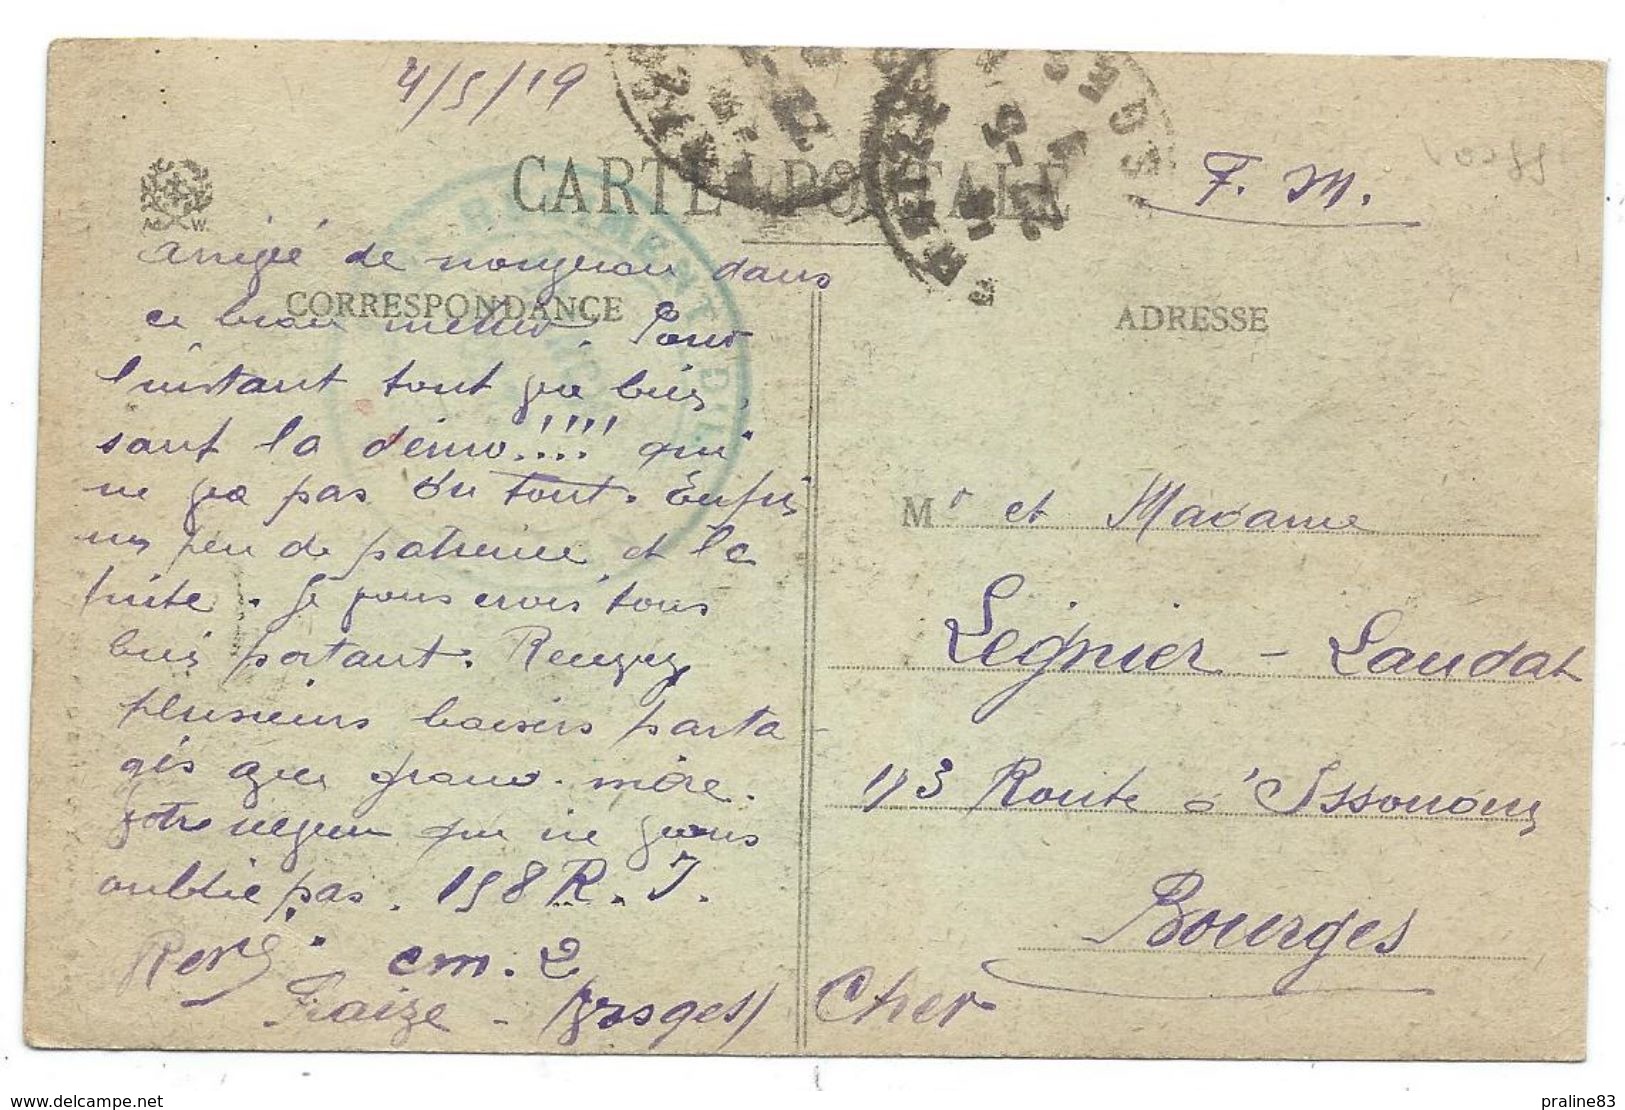 4/5/19
CARTE POSTALE
F. M.
CORRESPONDANCE
ADRESSE
arrivé de nouveau dans
ce beau métier. Pour
l'instant tout va bien,
sauf la démo!!!! qui
ne va pas du tout. Enfin
un peu de patience et la
fuite. Je vous crois tous
bien portant. Recevez
plusieurs baisers parta-
gés avec grand-mère.
Votre neveu qui ne vous
oublie pas. 158 R. I.
René cm. 2
Fraize - (Vosges)
Mr et Madame
Legnier - Laudat
113 Route d'Issoudun
Bourges
Cher
delcampe.net
praline83